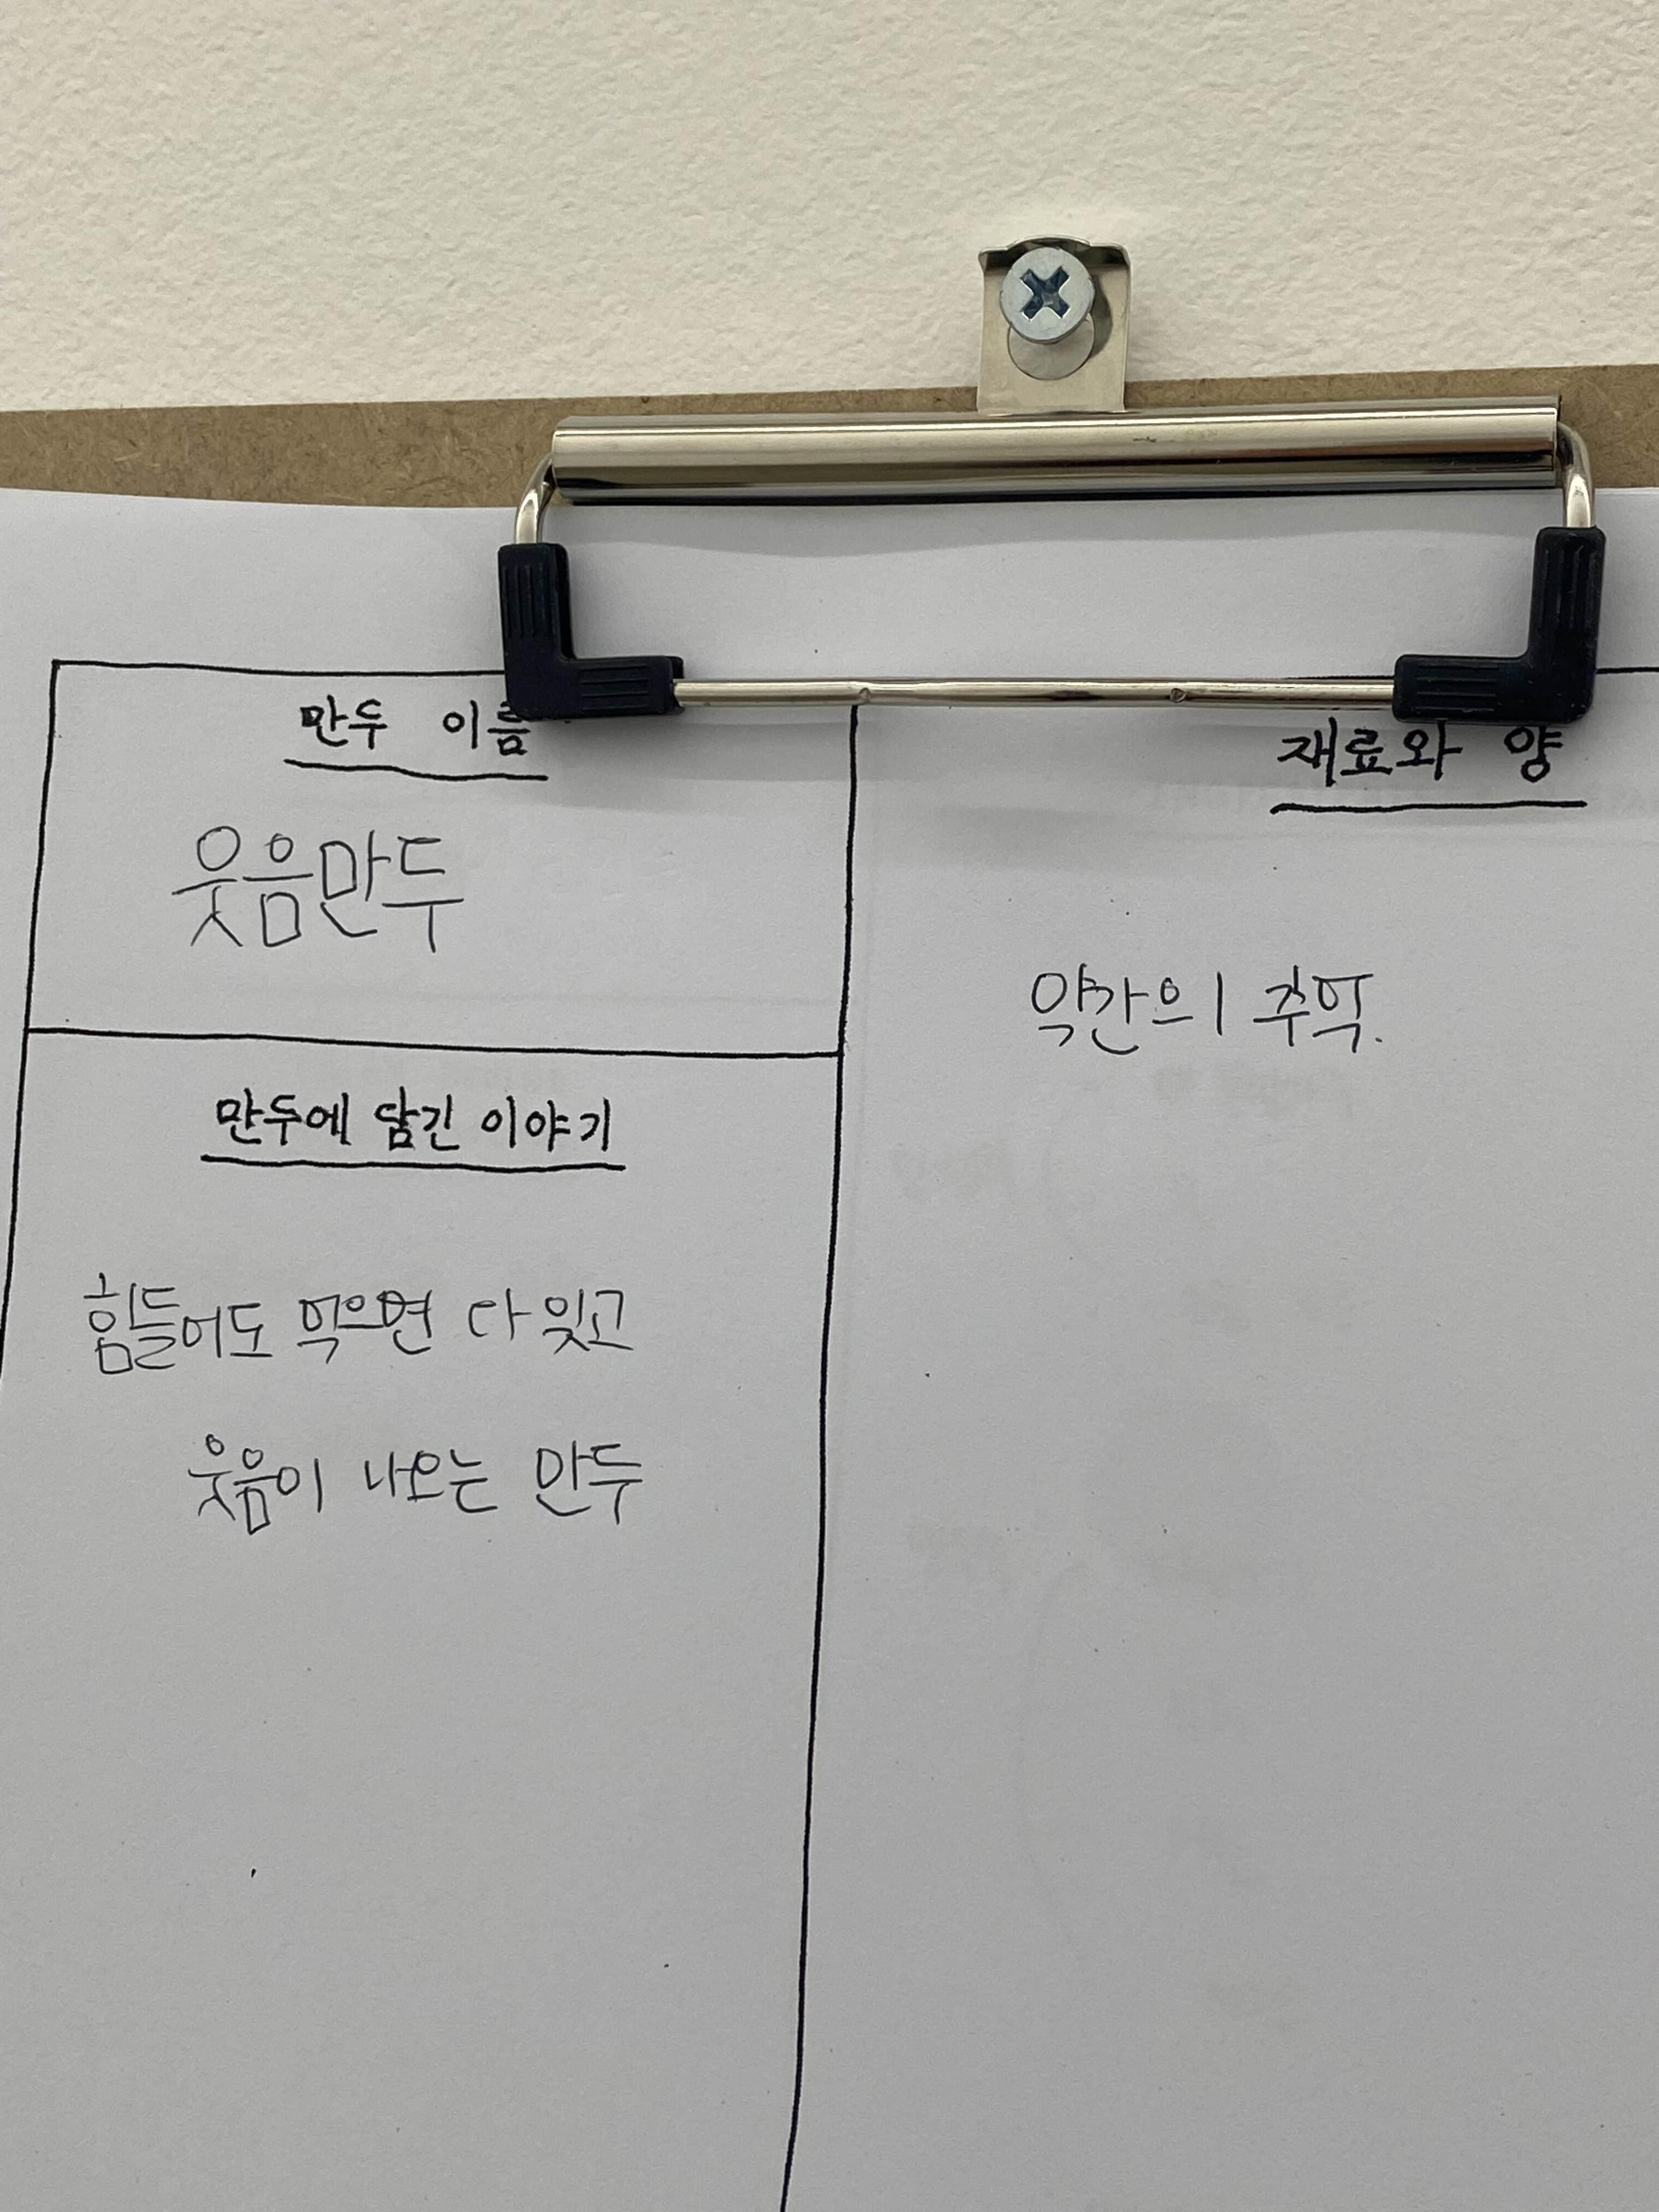 만두 이름
웃음만두
만두에 담긴 이야기
힘들어도 먹으면 다 잊고
웃음이 나오는 만두
재료와 양
약간의 추억.